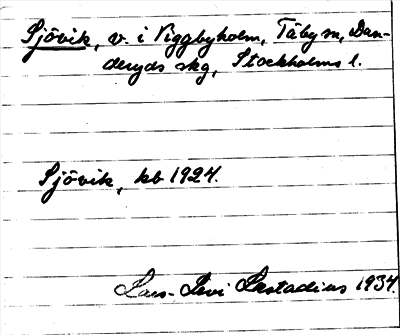 Sjövik, v. i Viggbyholm, Täby sn, Dan-
deryds skg, Stockholms l.
Sjövik, kb 1924.
Lars-Levi Læstadius 1934.